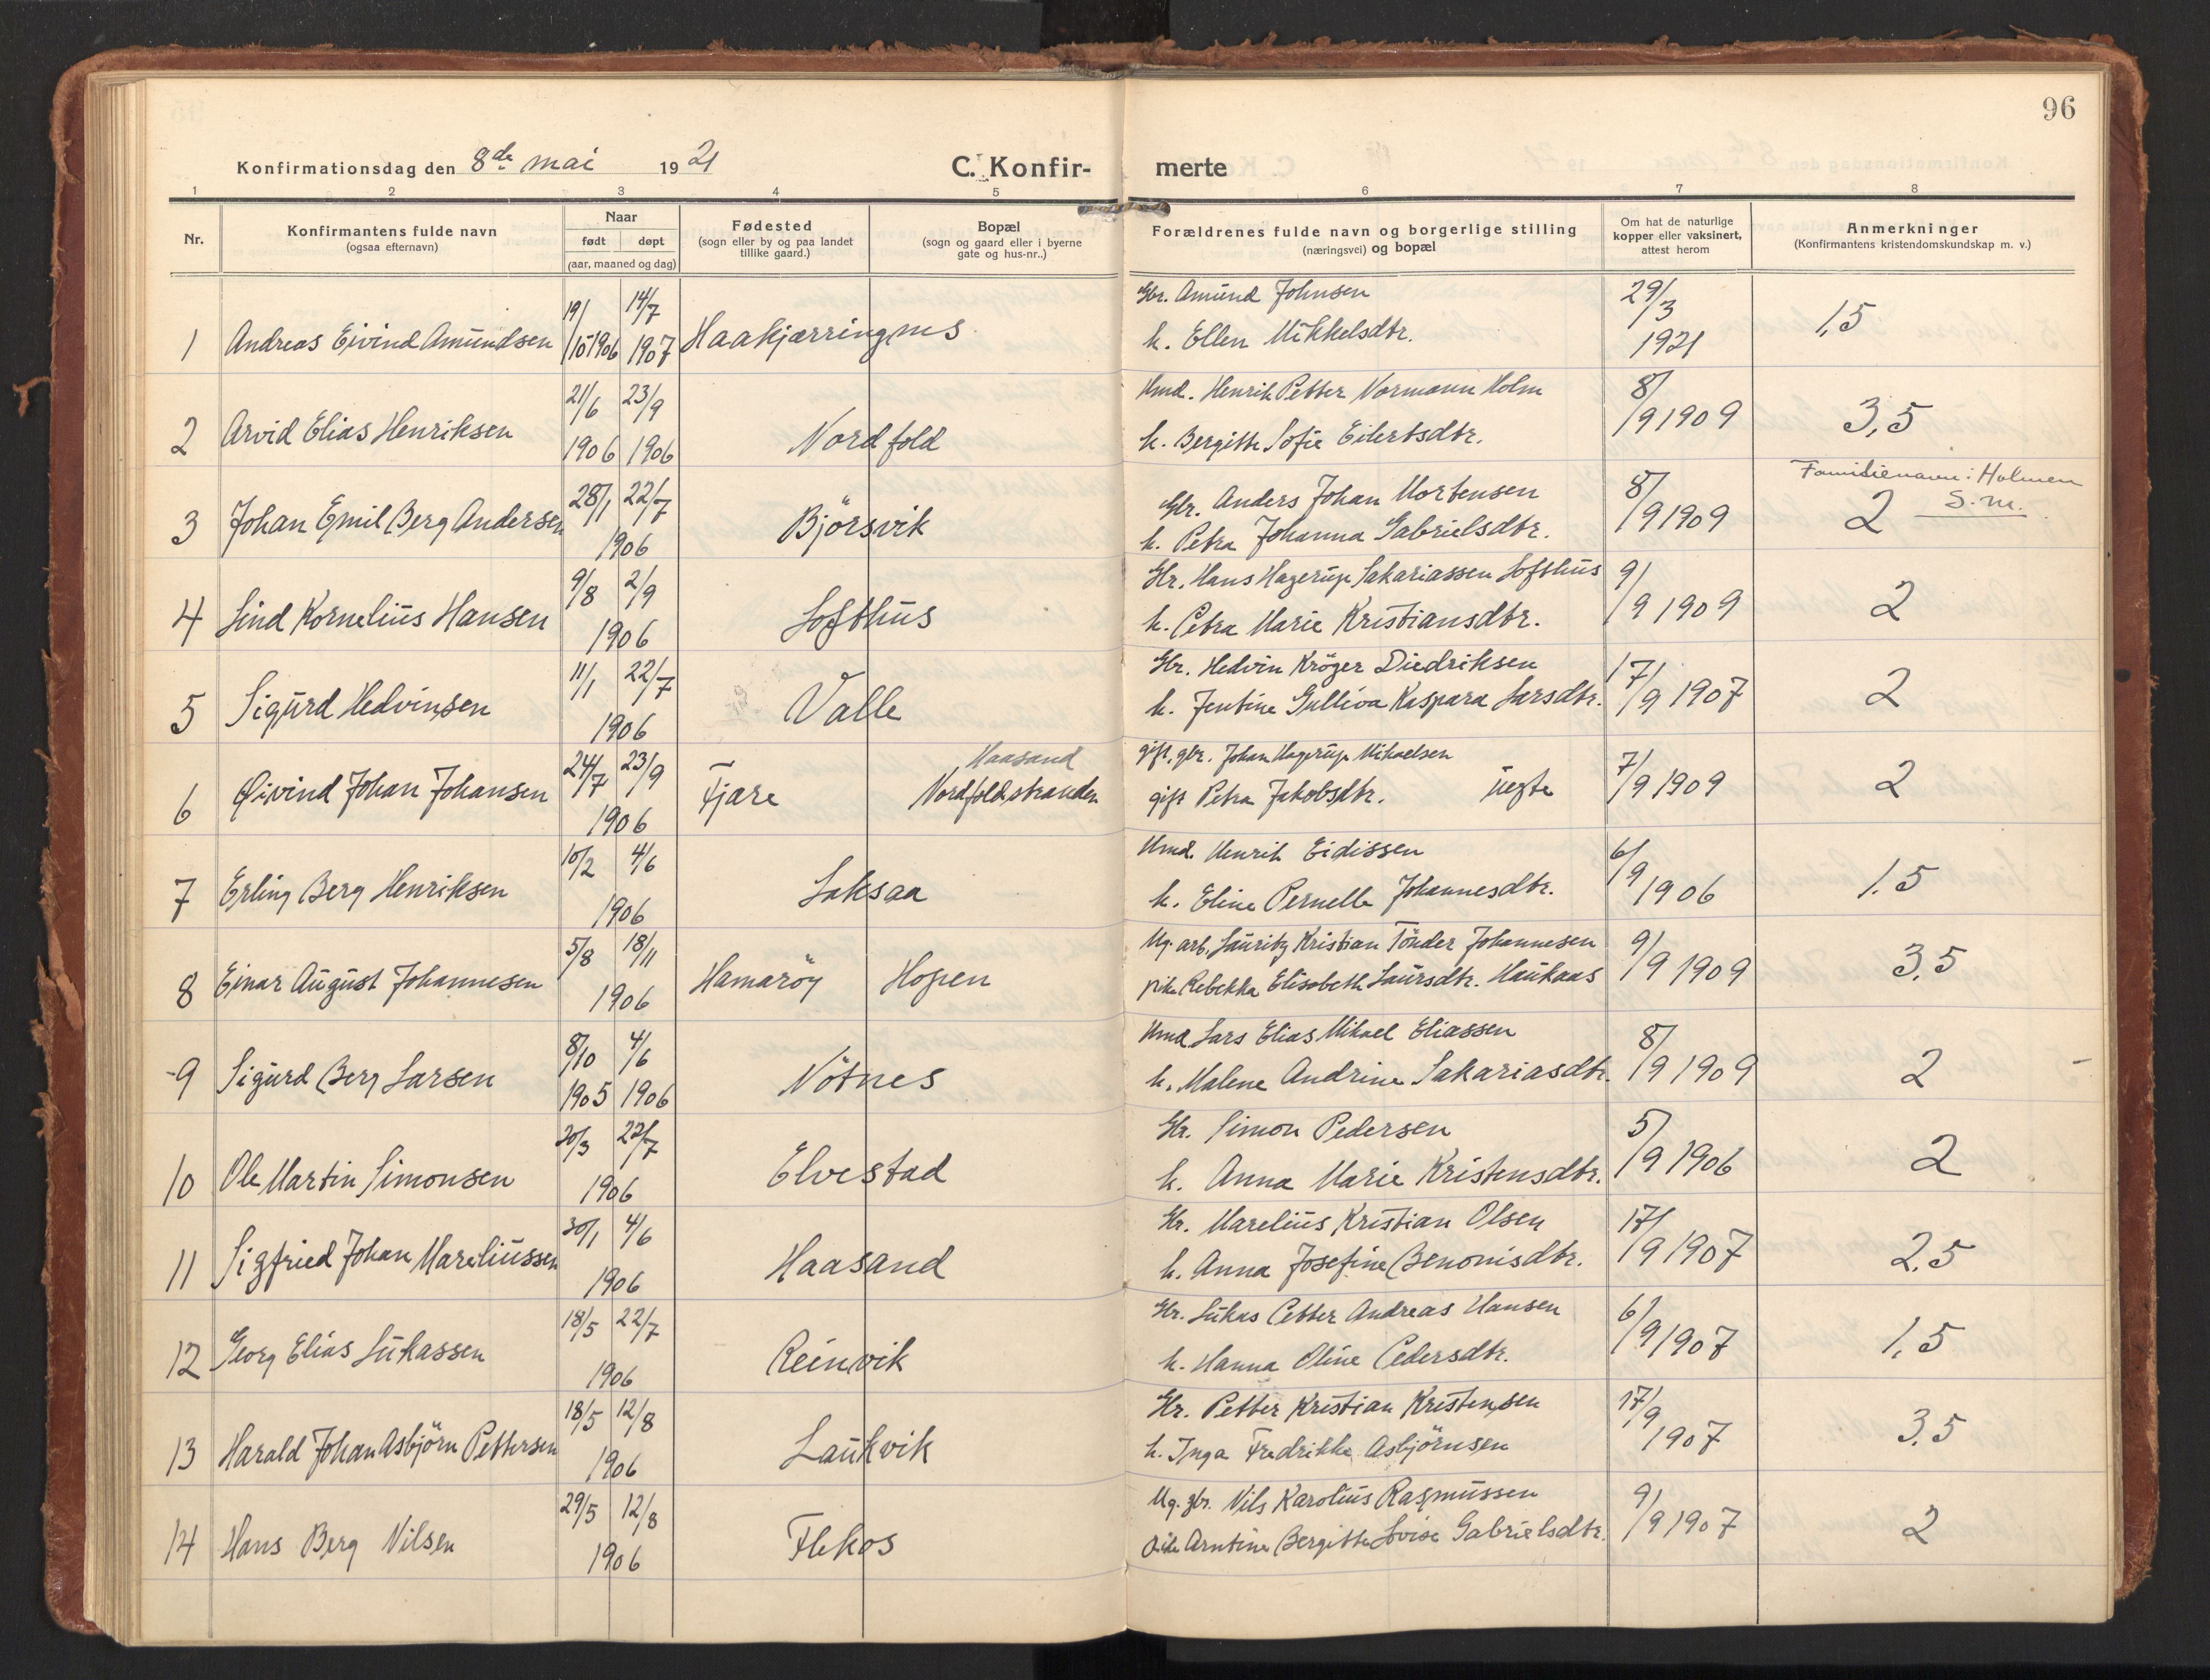 96
Konfirmationsdag den 8de mai 1921 C. Konfir- merte
1 2 3 4 5 6 7 8
Nr.
Konfirmantens fulde navn
(ogsaa efternavn)
Naar
født døpt
(aar, maaned og dag)
Fødested
(sogn eller by og paa landet
tillike gaard.)
Bopæl
(sogn og gaard eller i byerne
gate og hus-nr..)
Forældrenes fulde navn og borgerlige stilling
(næringsvei) og bopæl
Om hat de naturlige
kopper eller vaksinert,
attest herom
Anmerkninger
(Konfirmantens kristendomskundskap m. v.)
19/ 14/7 Gbr. Amund Johnsen 29/3
1 Andreas Eivind Amundsen /10 1906 1907 Haakjærringnes h. Ellen Mikkelsdtr. 1921 1,5
21/6 23/9 Kmd. Henrik Petter Normann Holm 8/
2 Arvid Elias Henriksen 1906 1906 Nordfold h. Bergitte Sofie Eilertsdtr. /9 1909 3,5
Familienavn: Holmen
28/1 22/7 Gbr. Anders Johan Mortensen 8/
3 Johan Emil Berg Andersen 1906 Björsvik h. Petra Johanna Gabrielsdtr. /9 1909 2 S.m.
9/8 2/9 Gbr. Hans Hagerup Sakariassen Lofthus 9/
4 Lind Kornelius Hansen 1906 Lofthus h. Petra Marie Kristiansdtr. /9 1909 2
11/1 22/7 Gbr. Hedvin Kröger Diedriksen 17/
5 Sigurd Hedvinsen 1906 Valle h. Jentine Gulliva Kaspara Larsdtr. /9 1907 2
24/7 23/9 Haasand gift. gbr. Johan Hagerup Mikaelsen 7/
6 Øivind Johan Johansen 1906 Fjære Nordfoldstranden gift Petra Jakobsdtr. uegte /9 1909 2
10/2 4/6 Kmd. Henrik Eidissen 6/9
7 Erling Berg Henriksen 1906 Laksaa h. Eline Pernelle Johannesdtr. 1906 1.5
5/8 18/11 Ug. arb. Lauritz Kristian Tönder Johannesen 9/
8 Einar August Johannesen 1906 Hamaröy Hopen pike Rebekka Elisabeth Laursdtr. Haukaas /9 1909 3,5
8/10 4/6 Kmd Lars Elias Mikael Eliassen 8/
9 Sigurd Berg Larsen 1905 1906 Nötnes h. Malene Andrine Sakariasdtr. /9 1909 2
20/3 22/7 Gbr. Simon Pedersen 5/
10 Ole Martin Simonsen 1906 Elvestad h. Anna Marie Kristensdtr. /9 1906 2
30/1 4/6 Gbr. Marelius Kristian Olsen 17/
11 Sigfried Johan Mareliussen 1906 Haasand h. Anna Josefine Benonisdtr. /9 1907 2,5
18/5 22/7 Gbr. Lukas Petter Andreas Hansen 6/
12 Georg Elias Lukassen 1906 Reinvik h. Hanna Oline Pedersdtr. /9 1907 1,5
18/5 12/8 Gbr. Petter Kristian Kristensen 17/9
13 Harald Johan Asbjörn Pettersen 1906 Laukvik h. Inga Fredrikke Asbjörnsen 1907 3,5
29/5 12/8 Ug. gbr. Nils Karolius Rasmussen 9/
14 Hans Berg Nilsen 1906 Flekos pike Arntine Bergitte Lovise Gabrielsdtr. /9 1907 2